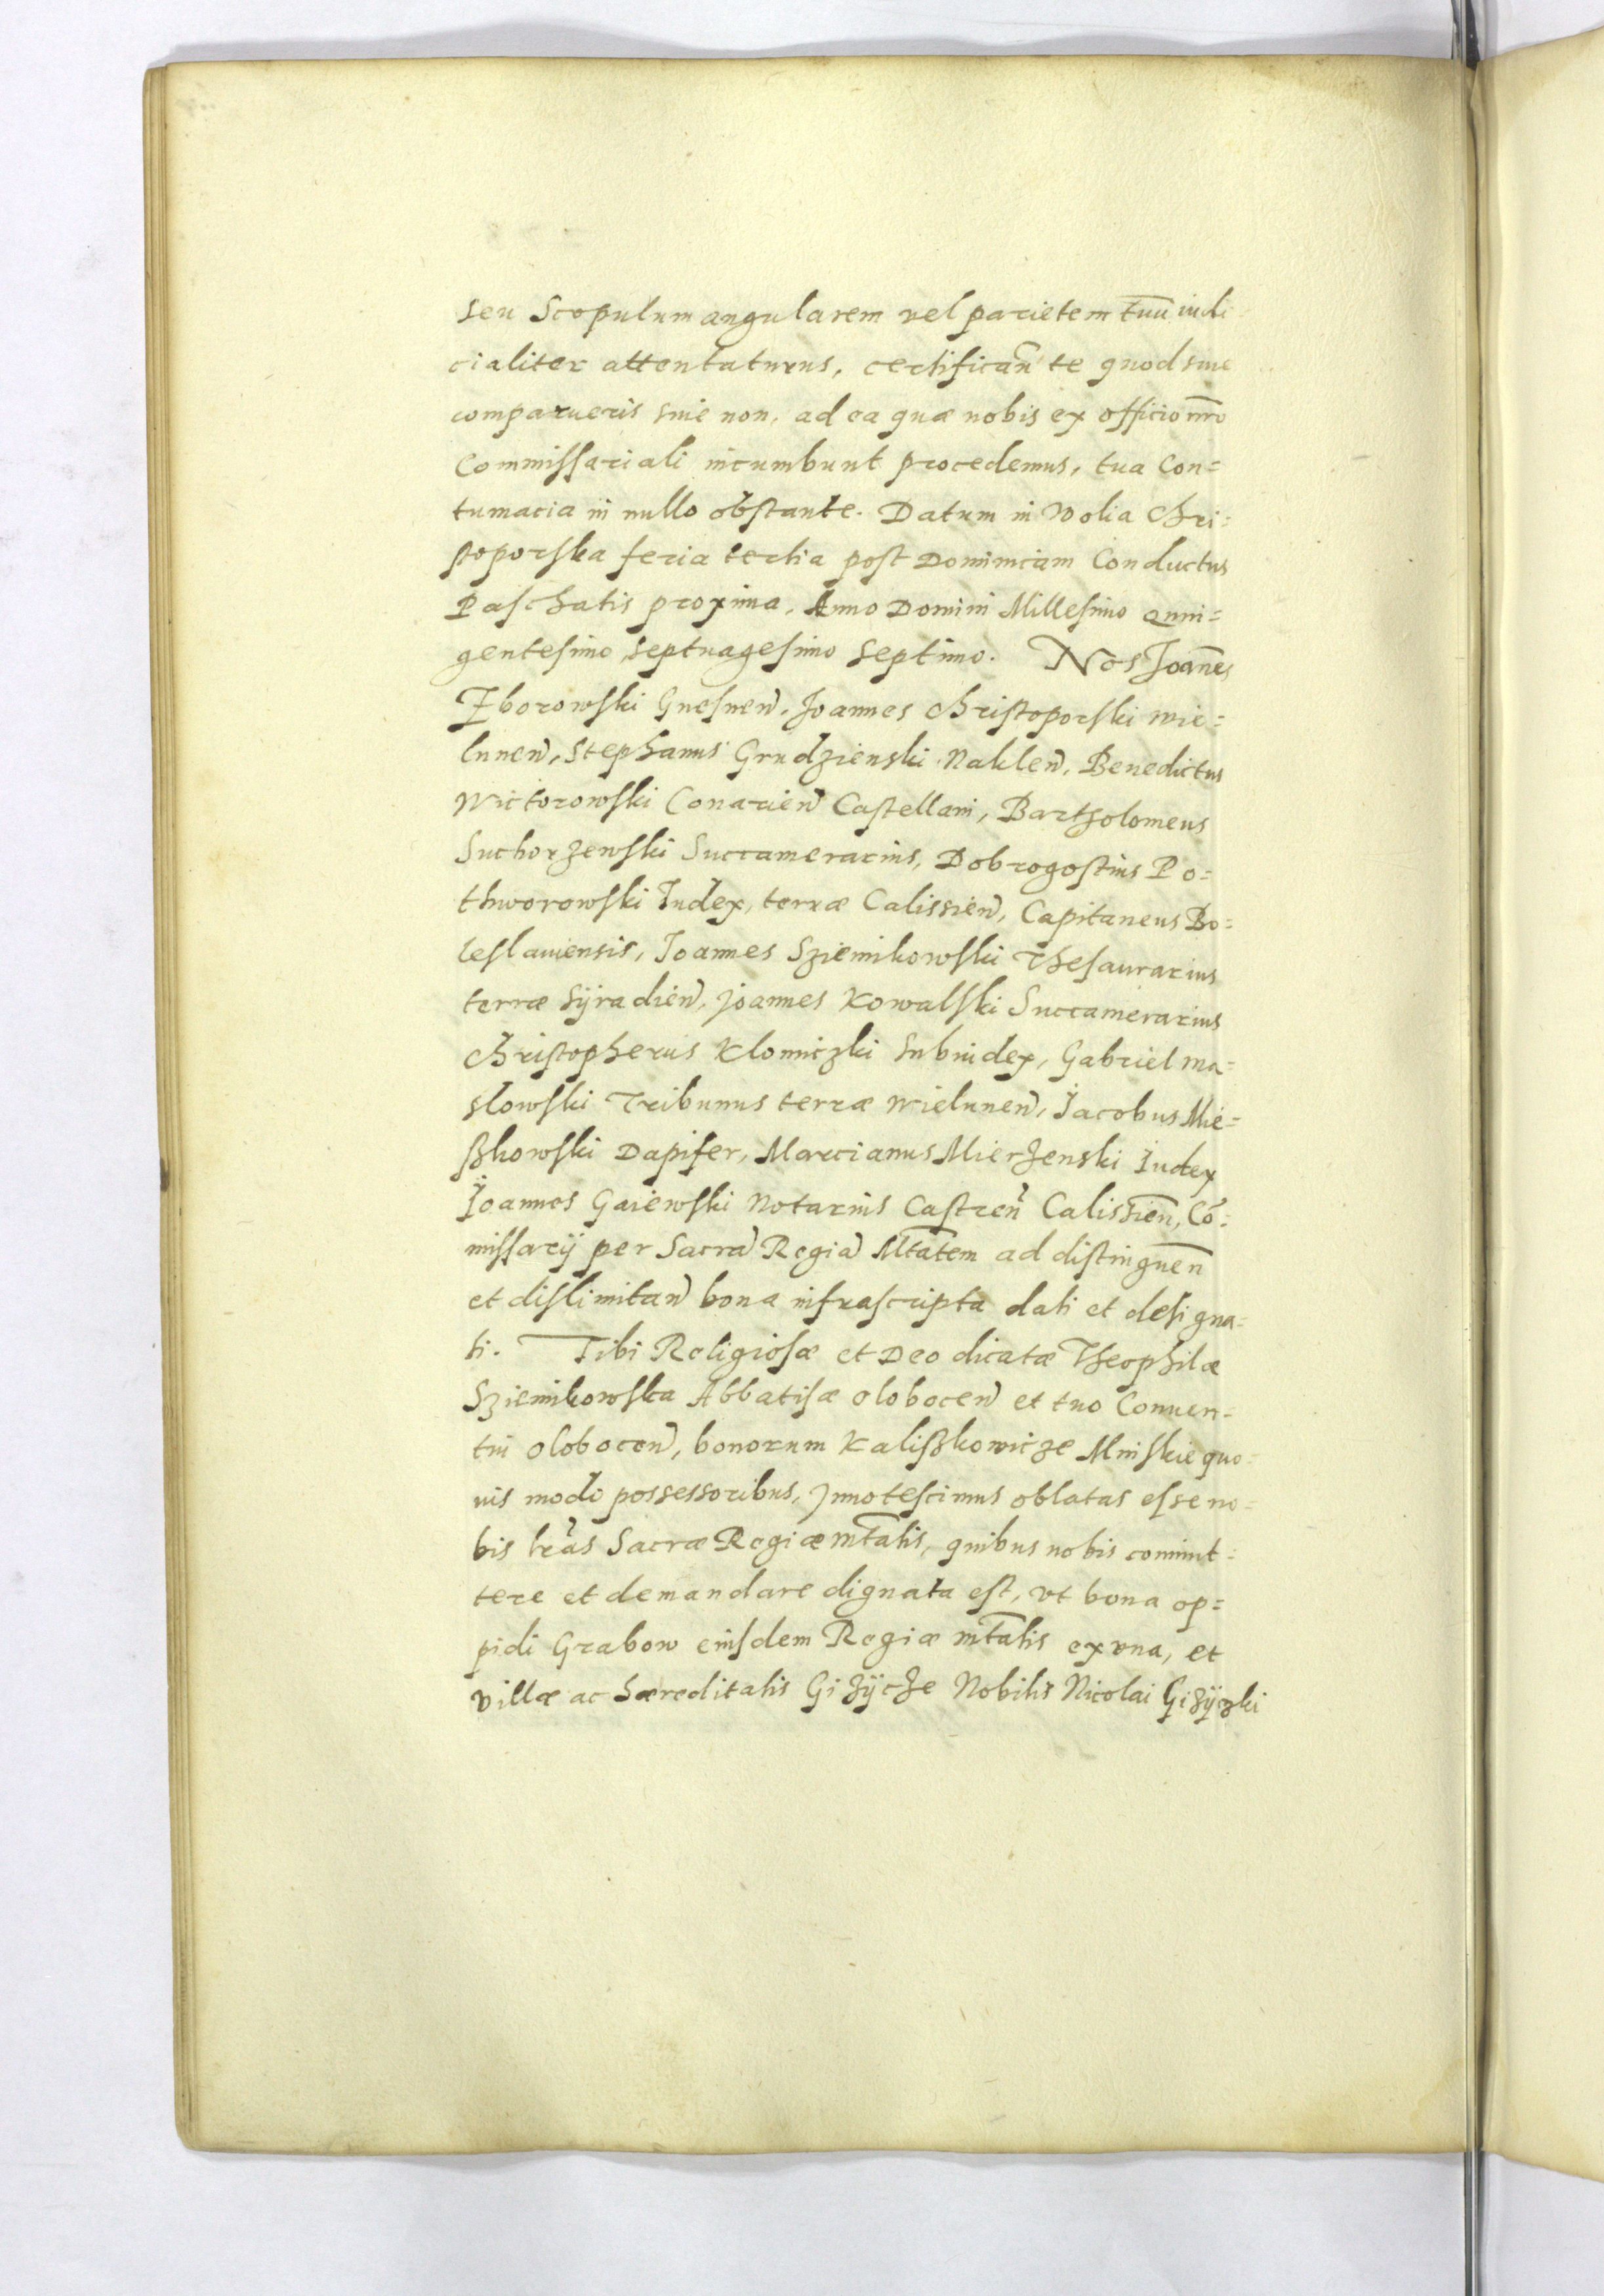 seu Scopulum angularem vel parietem tuū iudi
cialiter attentaturus, certifican̄ te quod siue
comparueris siue non, ad ea quæ nobis ex officio nr̄o
Commiſſariali incumbunt procedemus, tua Con=
tumacia in nullo obſtante. Datum in Wolia Chri=
ſtoporſka feria tertia poſt Dominicam Conductus
Paſchatis proxima, Anno Domini Milleſimo Quin=
genteſimo Septuageſimo Septimo. Nos Joan̄es
Zborowſki Gneſnen̄, Joannes Chriſtoporſki wie=
lunen̄, Stephanus Grudzienski Naklen̄, Benedictus
Wictorowſki Conarien̄ Caſtellani, Bartholomeus
Suchorzewſki Succamerarius, Dobrogoſtius Po=
thworowſki Iudex, terræ Calissien̄, Capitaneus Bo=
leſlauiensis, Joannes Sziemikowſki Theſaurarius
terræ Sÿradien̄, Joannes Kowalſki Succamerarius
Chriſtopherus Klomiczki Subiudex, Gabriel ma=
slowſki Tribunus terræ wielunen̄, Jacobus Mie=
ſzkowſki Dapifer, Marcianus Mierzenski Iudex
Joannes Gaiewſki Notarius Caſtren̄ Calissien̄, Cō=
miſſarÿ per Sacrā Regiā Mt̄atem ad diſtinguen̄
et diſlimitan̄ bona infraſcripta dati et deſigna=
ti. Tibi Religioſæ et Deo dicatæ Theophilæ
Sziemikowſka Abbatiſæ olobocen̄ et tuo Conuen=
tui olobocen̄, bonorum Kaliſzkowicze Mniſkie quo=
uis modo possessoribus, Innoteſcimus oblatas eſse no=
bis lr̄as Sacræ Regiæ mt̄atis, quibus nobis commit=
tere et demandare dignata eſt, vt bona op=
pidi Grabow eiuſdem Regiæ mt̄atis ex vna, et
villæ ac hæreditatis Gizÿcze Nobilis Nicolai Gizÿczki